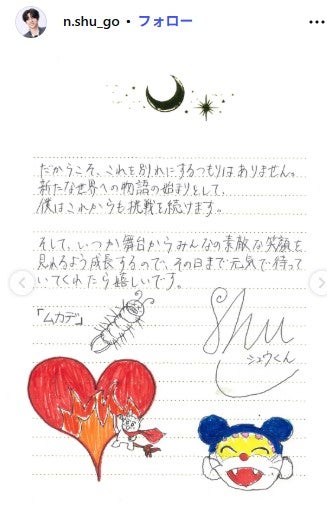 n.shu_go • フォロー
だからこそ、これを別れにするつもりはありません。
新たな世界への物語の始まりとして、
僕はこれからも挑戦を続けます。
そして、いつか舞台からみんなの素敵な笑顔を
見れるよう成長するので、その日まで元気で待って
いてくれたら嬉しいです。
「ムカデ」
Shu
シュウくん